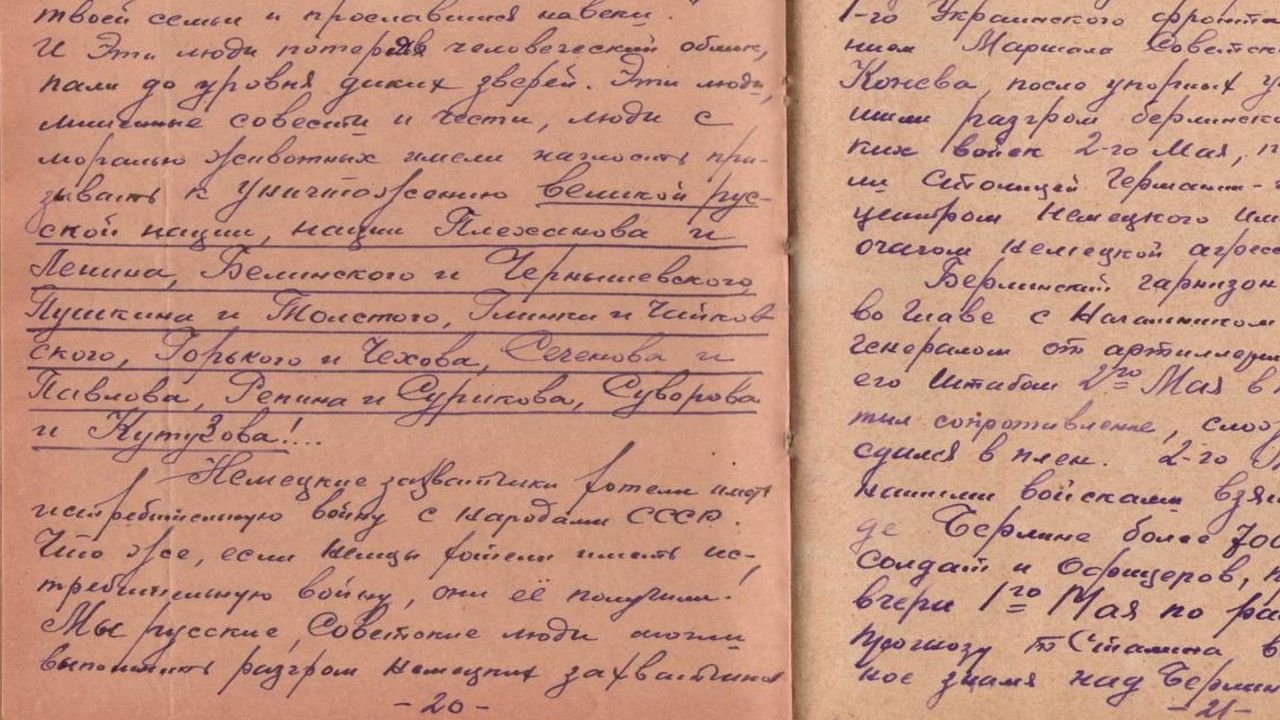 твоей семьи и прославишся навеки."
И Эти люди потеряв человеческий облик,
пали до уровня диких зверей. Эти люди,
лишенные совести и чести, люди с
моралью животных имели наглость при-
зывать к уничтожению великой рус-
ской нации, нации Плеханова и
Ленина, Белинского и Чернышевского
Пушкина и Толстого, Глинки и Чайков
ского, Горького и Чехова, Сеченова и
Павлова, Репина и Сурикова, Суворова
и Кутузова!...
Немецкие захватчики хотели иметь
истребительную войну с народами СССР.
Что же, если немцы хотели иметь ис-
требительную войну, они её получили!
Мы русские, Советские люди
выполнить разгром немецких захватчиков
- 20 -
1-го Украинского фронта
нием Маршала Советск
Конева, после упорных у
шили разгром берлинско
ких войск 2-го Мая,
ли Столицей Германии -
центром немецкого им
очагом немецкой агресс
Берлинский гарнизон
во главе с Начальником
генералом от артиллерии
его Штабом 2го Мая в
тил сопротивление, слож
сдался в плен. 2-го
нашими войсками взя
де Берлине более 700
солдат и Офицеров,
вчера 1го Мая по ра
прогнозу т Сталина в
ное знамя над Берлин
- 21 -